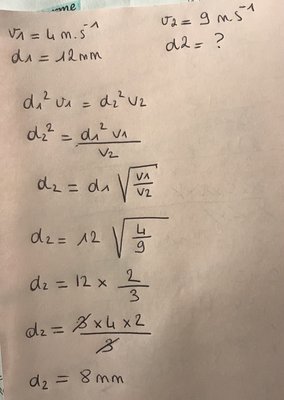 v1 = 4 m.s⁻¹
v2 = 9 m.s⁻¹
d1 = 12mm
d2 = ?
d1² v1 = d2² v2
d2² = d1² v1 / v2
d2 = d1 √(v1/v2)
d2 = 12 √(4/9)
d2 = 12 × 2/3
d2 = 3×4×2 / 3
d2 = 8 mm